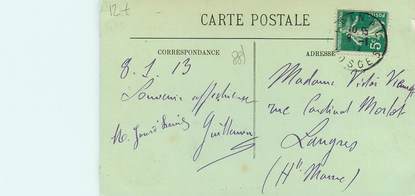 12-t
CARTE POSTALE
CORRESPONDANCE
ADRESSE
8.1.13
Souvenir affectueux
Guillemin
Madame Victor
rue Cardinal Morlot
Langres
(Hte Marne)